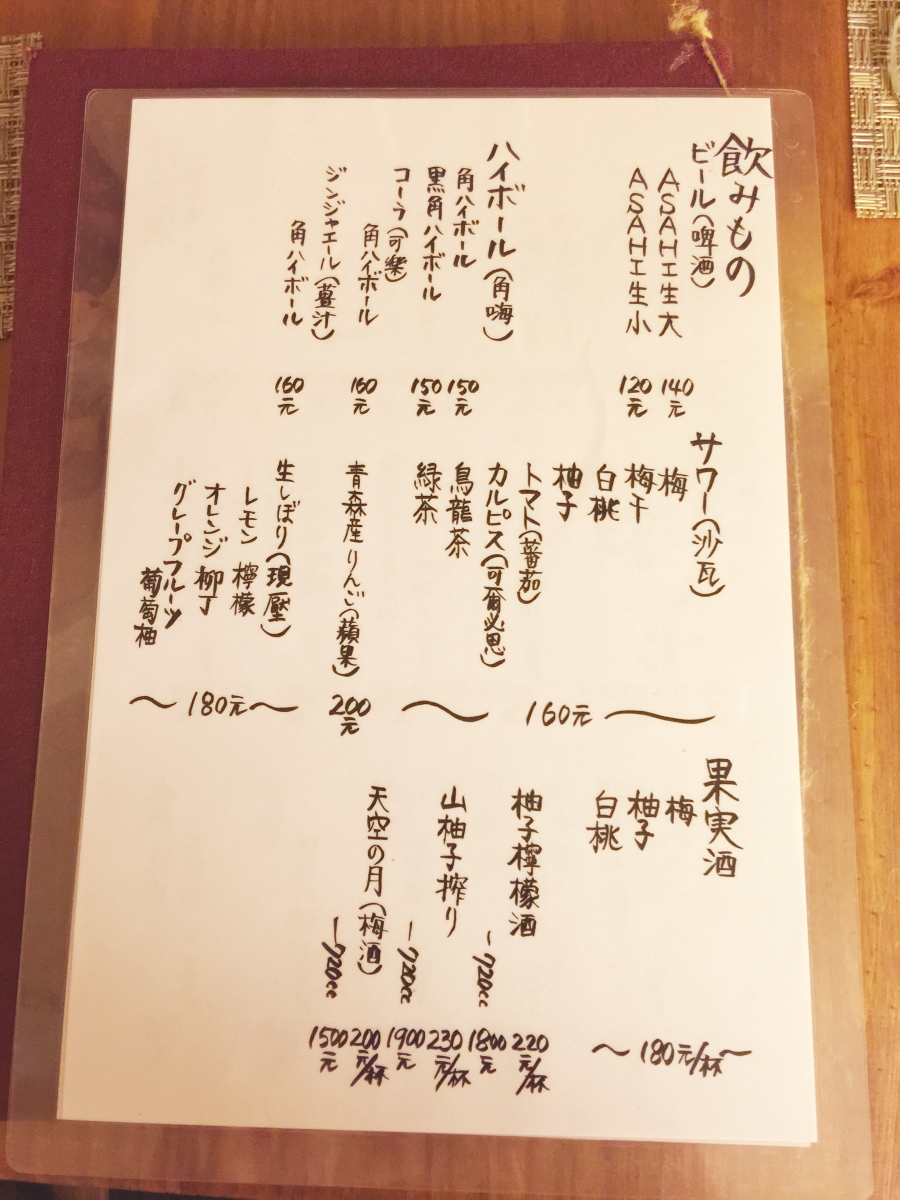 飲みもの
ビール(啤酒)
ASAHI生大
140元
ASAHI生小
120元
ハイボール(角嗨)
角ハイボール
150元
黒角ハイボール
150元
コーラ(可樂)
角ハイボール
160元
ジンジャエール(薑汁)
角ハイボール
160元
サワー(沙瓦)
梅
梅干
白桃
柚子
トマト(蕃茄)
カルピス(可爾必思)
烏龍茶
緑茶
〜160元〜
青森産りんご(蘋果)
200元
生しぼり(現壓)
レモン 檸檬
オレンジ 柳丁
グレープフルーツ
葡萄柚
〜180元〜
果実酒
梅
柚子
白桃
〜180元/杯〜
柚子檸檬酒
220元/杯
-720cc
1800元
山柚子搾り
230元/杯
-720cc
1900元
天空の月(梅酒)
200元/杯
-720cc
1500元